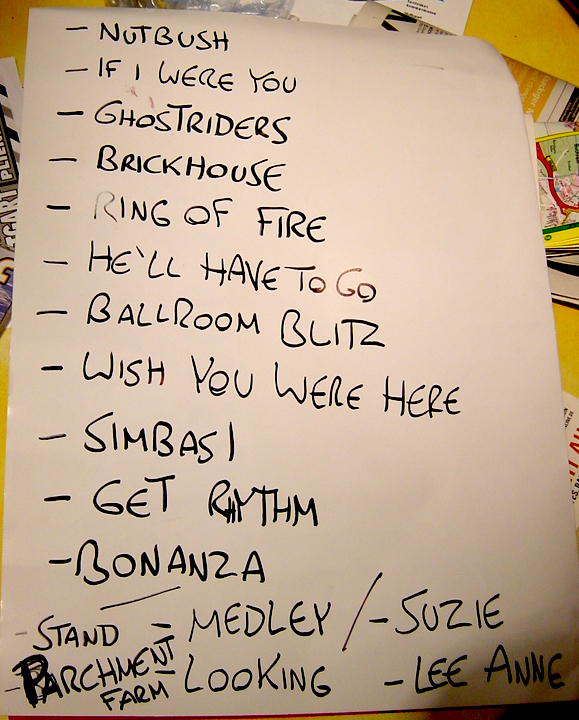 - NUTBUSH
- IF I WERE YOU
- GHOSTRIDERS
- BRICKHOUSE
- RING OF FIRE
- HE'LL HAVE TO GO
- BALLROOM BLITZ
- WISH YOU WERE HERE
- SIMBASI
- GET RHYTHM
- BONANZA
- STAND - MEDLEY / - SUZIE
- PARCHMENT FARM - LOOKING - LEE ANNE